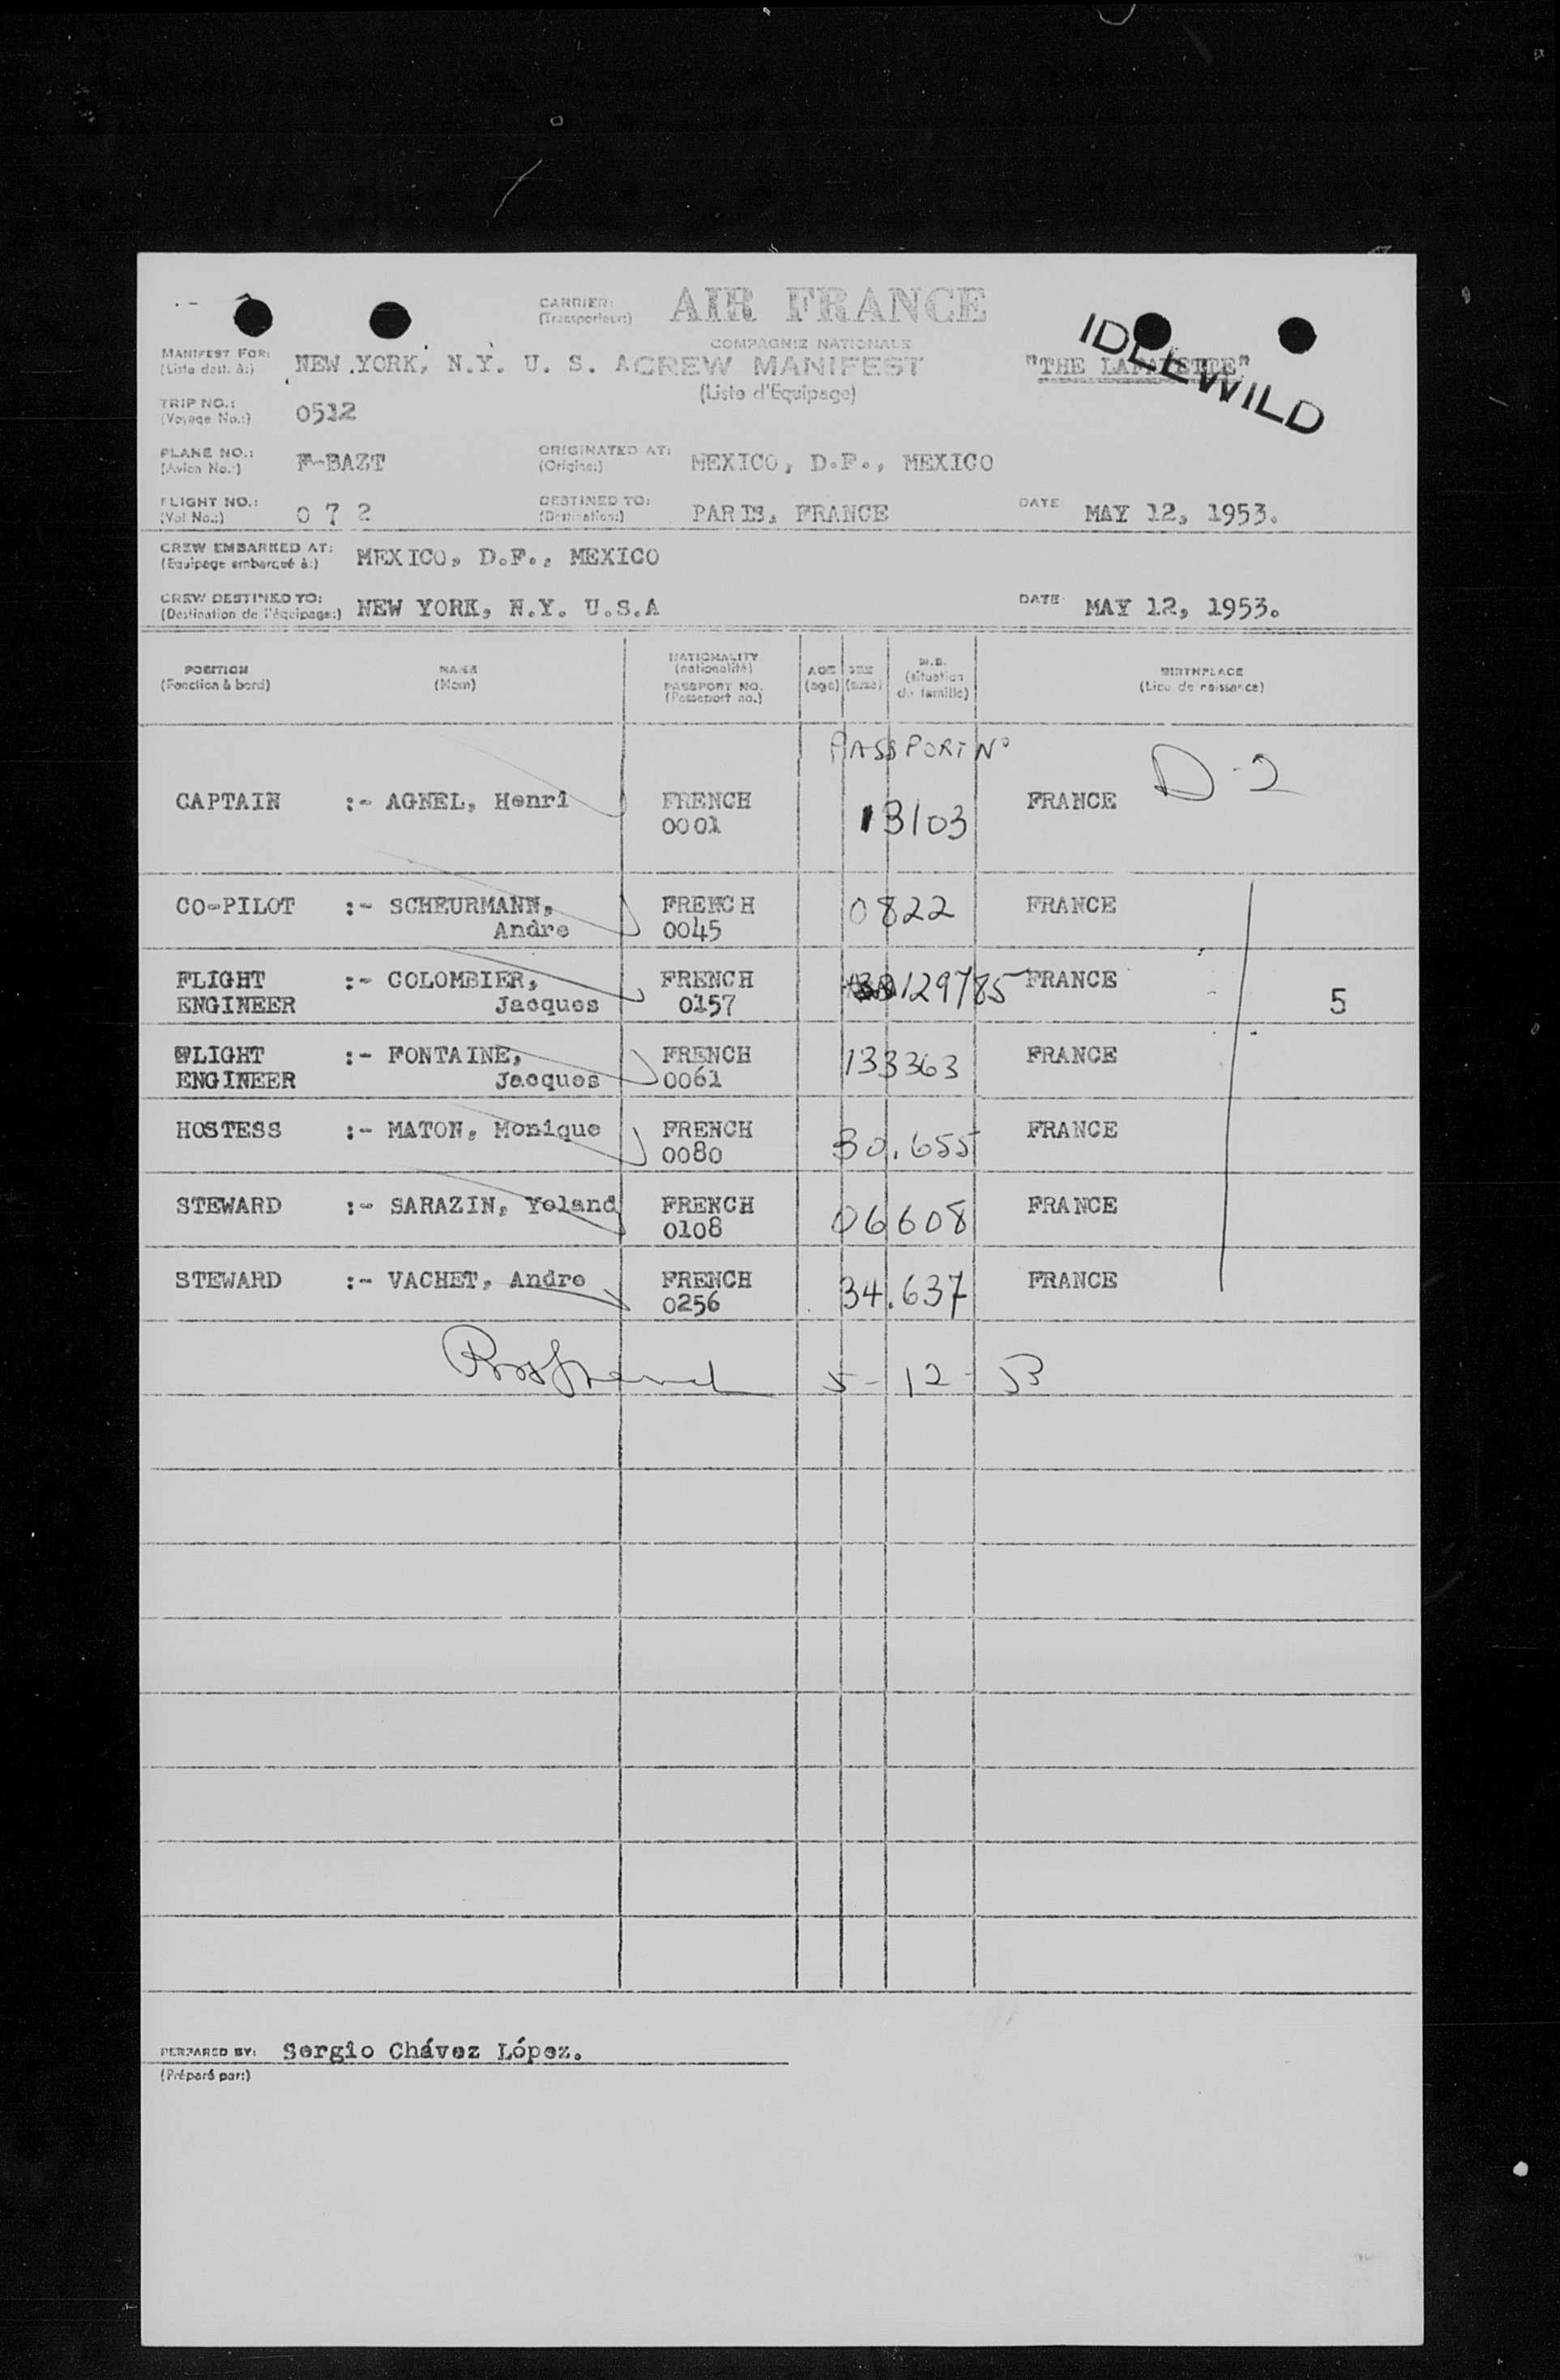 CARRIER: AIR FRANCE
(Transporteur:)
COMPAGNIE NATIONALE
IDLEWILD
MANIFEST FOR: NEW YORK, N.Y. U. S. A CREW MANIFEST "THE LAFAYETTE"
(Liste dest. à:)
(Liste d'Equipage)
TRIP NO.: 0512
(Voyage No.:)
PLANE NO.: F-BAZT ORIGINATED AT: MEXICO, D.F., MEXICO
(Avion No.:) (Origine:)
FLIGHT NO.: 0 7 2 DESTINED TO: PARIS, FRANCE DATE MAY 12, 1953.
(Vol No.:) (Destination:)
CREW EMBARKED AT: MEXICO, D.F., MEXICO
(Equipage embarqué à:)
CREW DESTINED TO: NEW YORK, N.Y. U.S.A DATE MAY 12, 1953.
(Destination de l'équipage:)
POSITION NAME NATIONALITY AGE SEX M.S. BIRTHPLACE
(Fonction à bord) (Nom) (nationalité) (age) (sexe) (situation de famille) (Lieu de naissance)
PASSPORT NO.
(Passeport no.)
PASSPORT Nº
D-2
CAPTAIN :- AGNEL, Henri FRENCH 13103 FRANCE
0001
CO-PILOT :- SCHEURMANN, FRENCH 0822 FRANCE
Andre 0045
FLIGHT :- COLOMBIER, FRENCH 129785 FRANCE
ENGINEER Jacques 0157 5
FLIGHT :- FONTAINE, FRENCH 133363 FRANCE
ENGINEER Jacques 0061
HOSTESS :- MATON, Monique FRENCH 30.655 FRANCE
0080
STEWARD :- SARAZIN, Yoland FRENCH 06608 FRANCE
0108
STEWARD :- VACHET, Andre FRENCH 34.637 FRANCE
0256
5-12-53
PERPARED BY: Sergio Chávez López.
(Préparé par:)